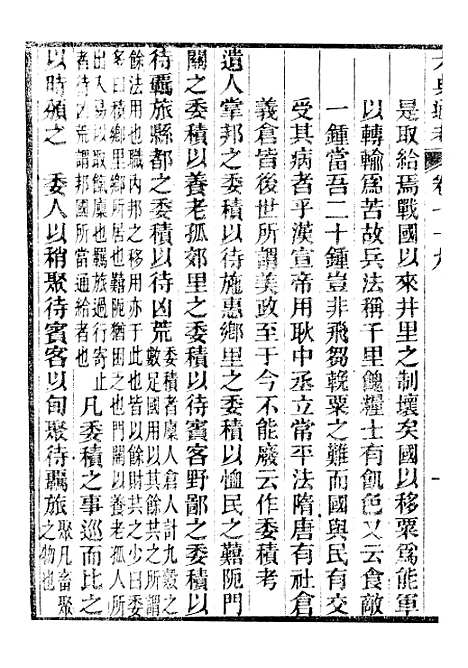 六典通考 卷七十九 一
是取給焉戰國以來井里之制壞矣國以移粟爲能軍
以轉輸爲苦故兵法稱千里餽糧士有飢色又云食敵
一鍾當吾二十鍾豈非飛芻輓粟之難而國與民有交
受其病者乎漢宣帝用耿中丞立常平法隋唐有社倉
義倉皆後世所謂美政至于今不能廢云作委積考
遺人掌邦之委積以待施惠鄉里之委積以恤民之囏阨門
關之委積以養老孤郊里之委積以待賓客野鄙之委積以
待羈旅縣都之委積以待凶荒
委積者廩人倉人計九穀之
數足國用以其餘共之所謂
餘法用也職內邦之移用亦于此也皆以餘財共之少曰委
多曰積鄉里鄉所居也囏阨猶困乏也門關以養老孤人所
出入易以取餼廩也羈旅過行寄止
者待凶荒謂邦國所當通給者也
凡委積之事巡而比之
以時頒之 委人以稍聚待賓客以甸聚待羈旅
聚凡畜聚
之物也